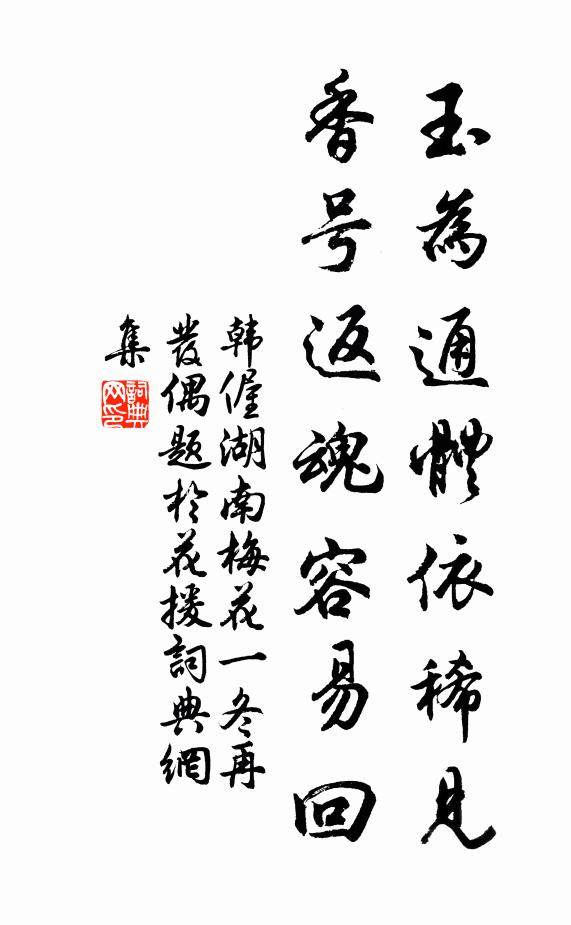 玉為通體依稀見
香号返魂容易回
韩偓湖南梅花一冬再
發偶题於花援詞典網
集
詞典网印